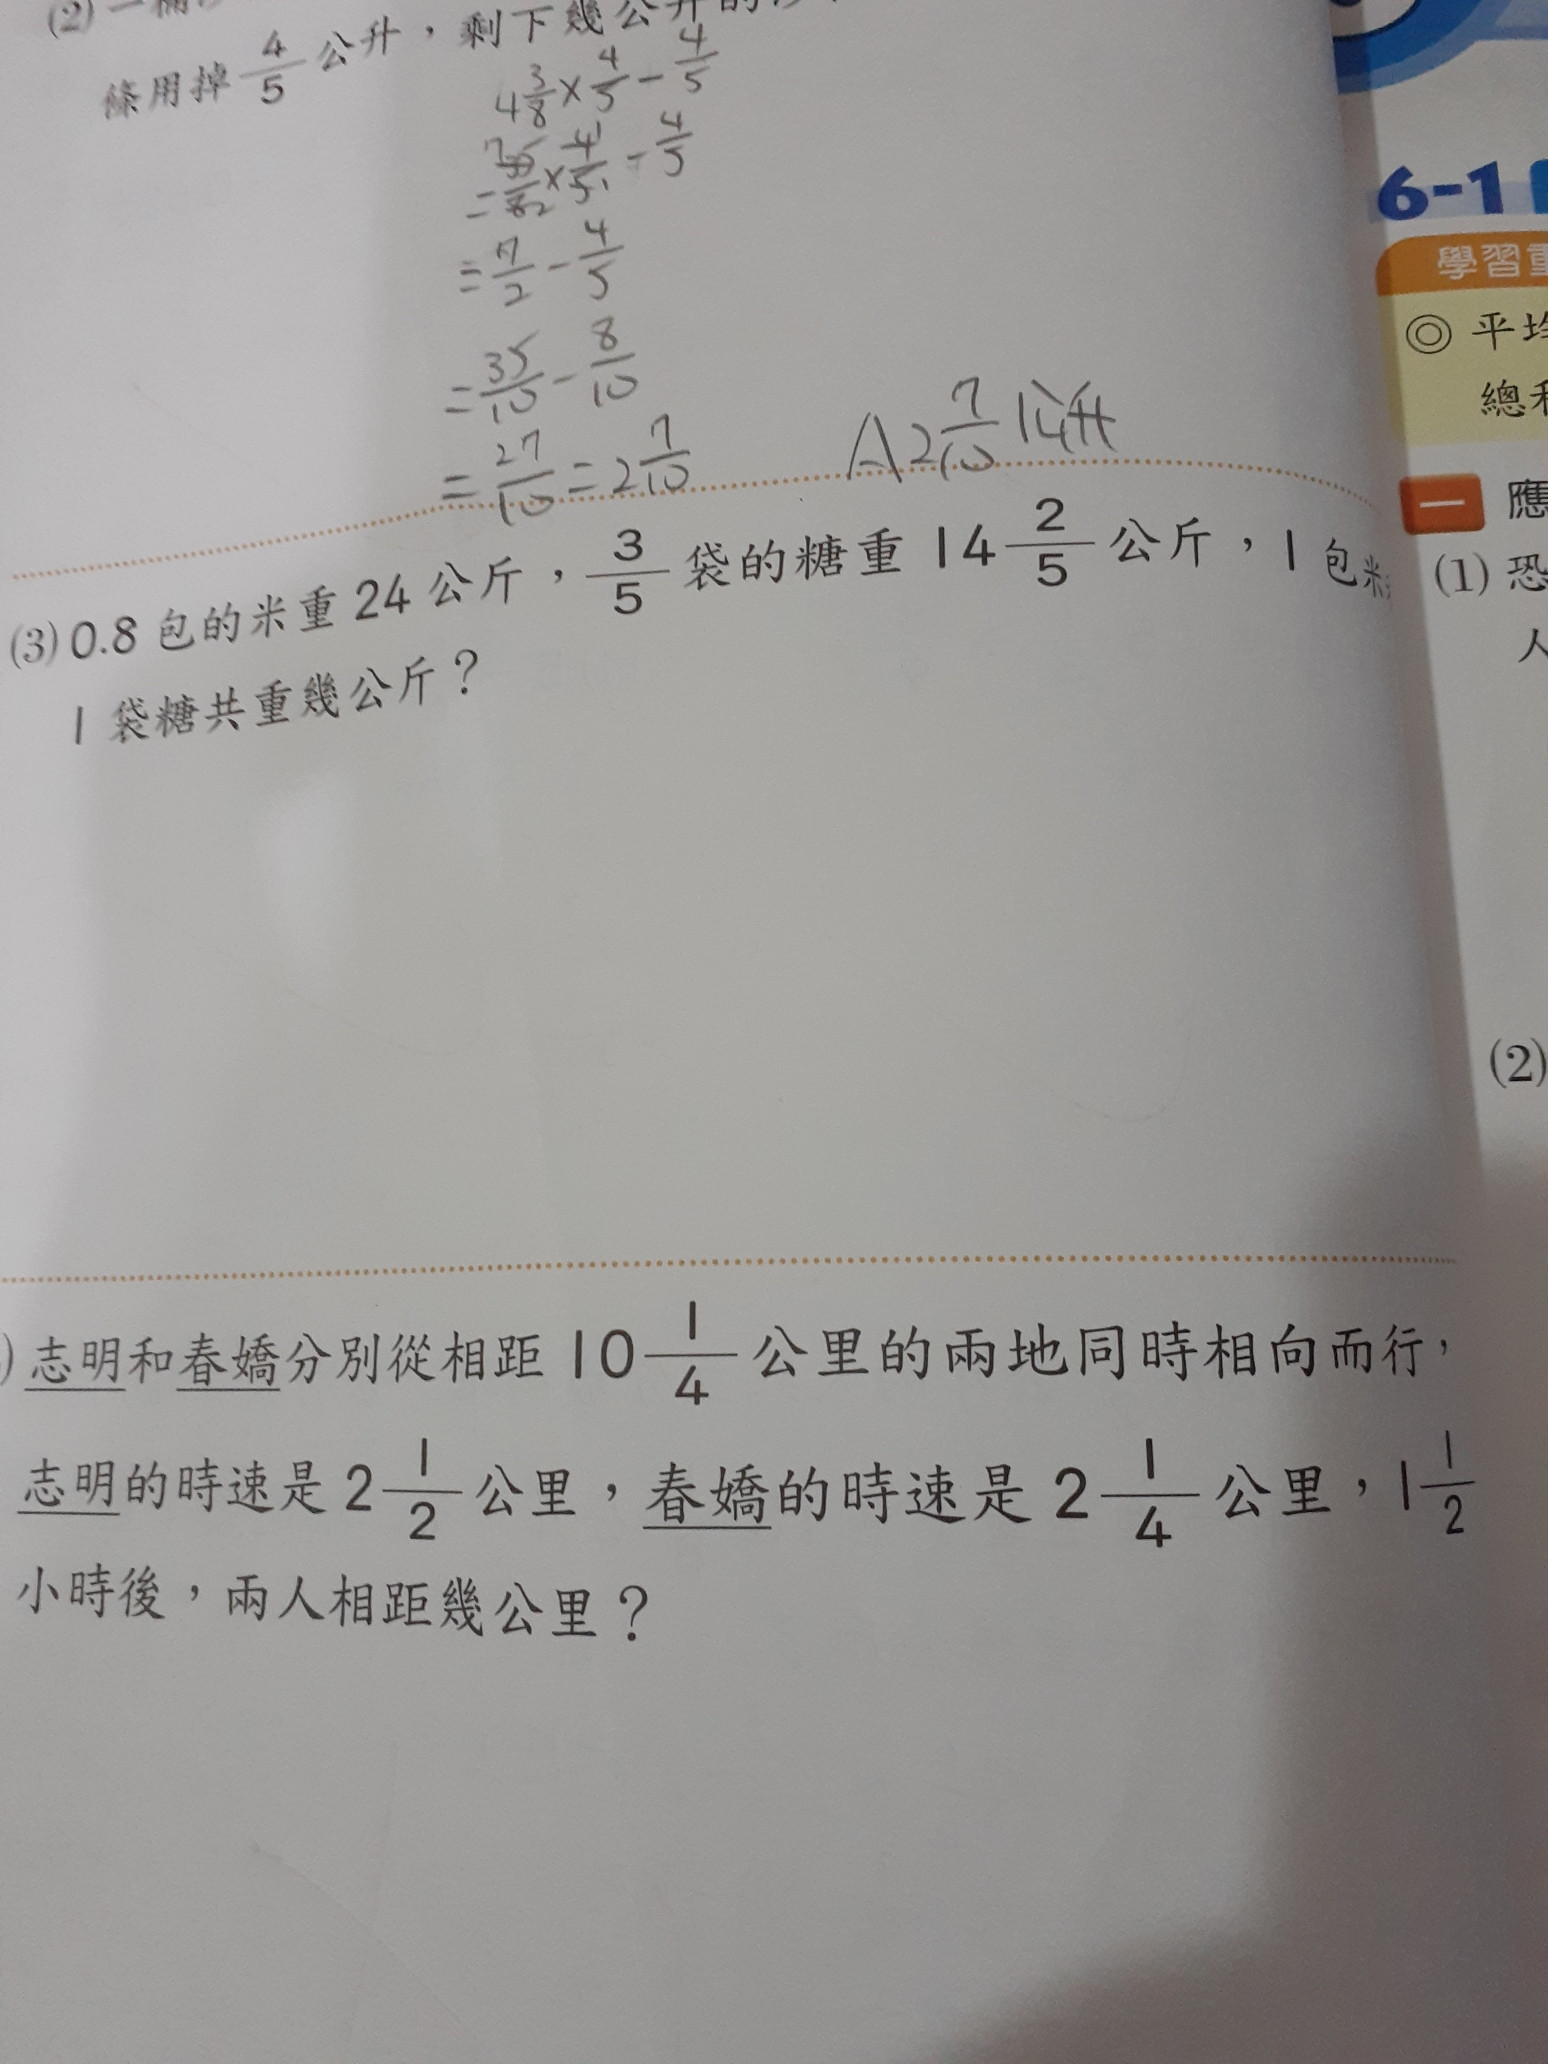 (2) 一
條用掉 4/5 公升，剩下幾公升的
4 3/8 × 4/5 - 4/5
= 35/8 × 4/5 - 4/5
= 7/2 - 4/5
= 35/10 - 8/10
= 27/10 = 2 7/10
A 2 7/10 公升
(3) 0.8 包的米重 24 公斤，3/5 袋的糖重 14 2/5 公斤，1 包米
1 袋糖共重幾公斤？
) 志明和春嬌分別從相距 10 1/4 公里的兩地同時相向而行，
志明的時速是 2 1/2 公里，春嬌的時速是 2 1/4 公里，1 1/2
小時後，兩人相距幾公里？
6-1
學習重
◎ 平均
總和
一 應
(1) 恐
人
(2)